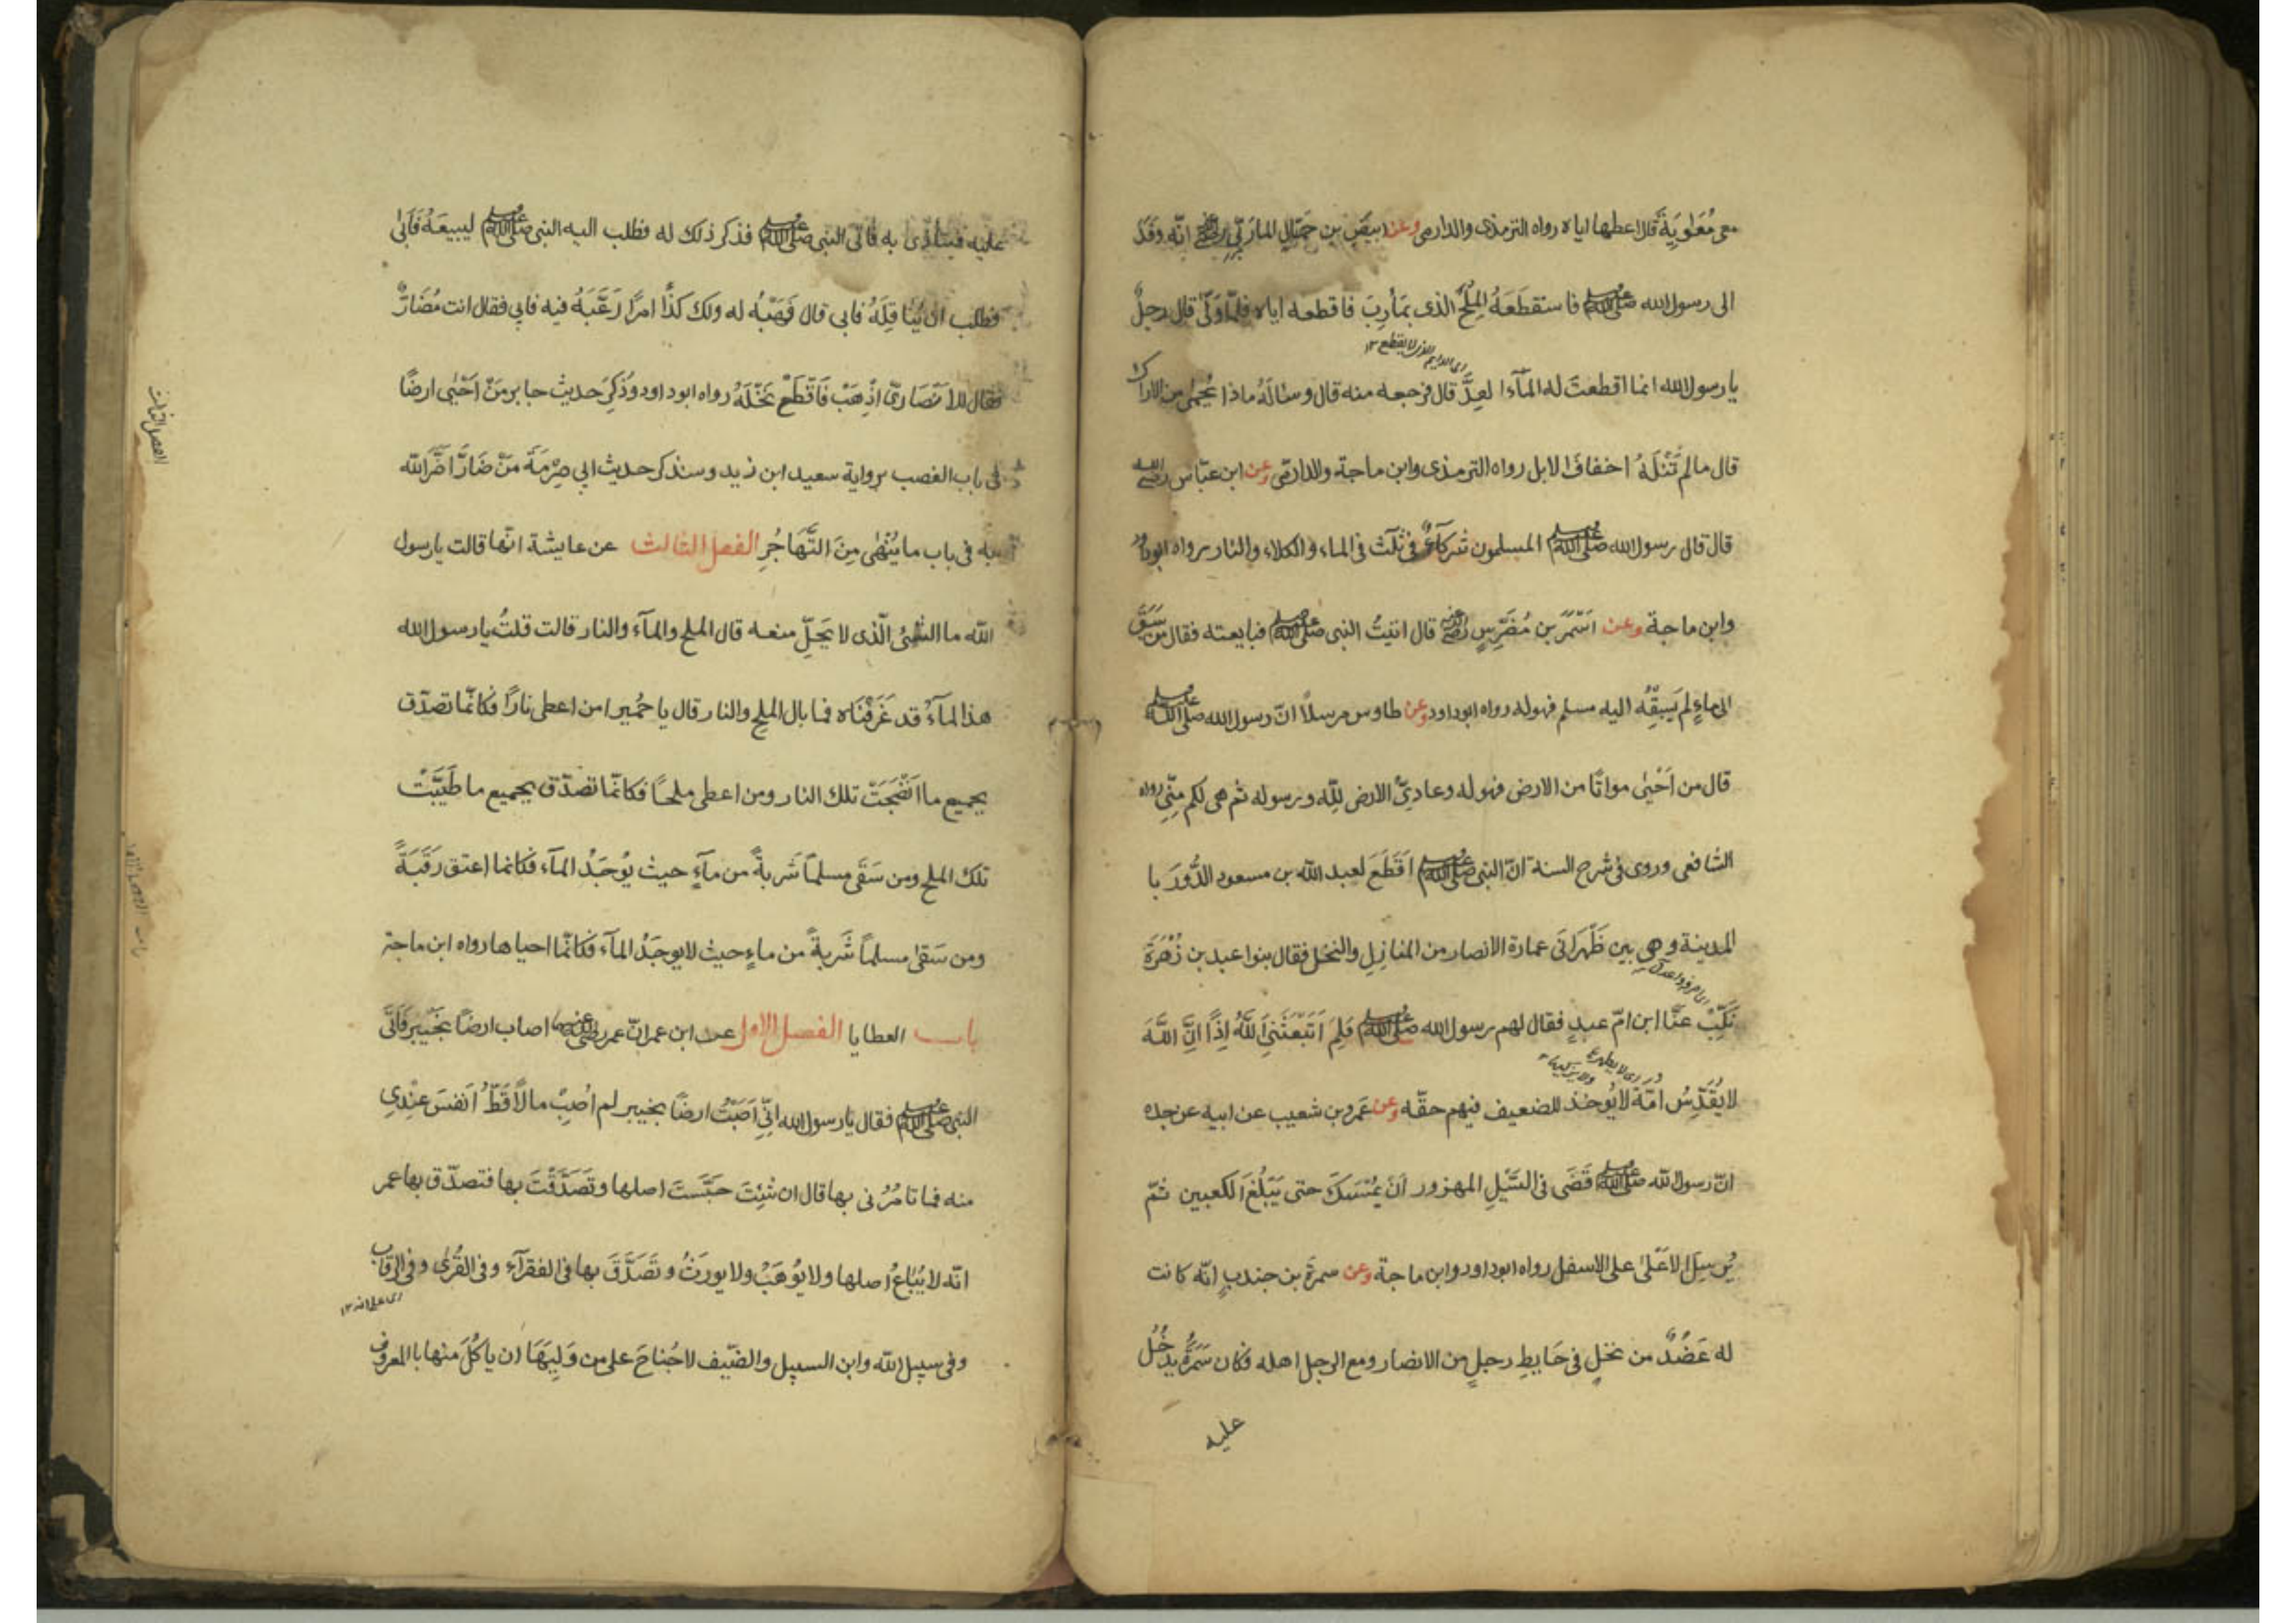 معى مُعَاوِيَةَ قال اعطها اياه رواه الترمذى والدارمى وعن ابيَضَ بن حَمَّالٍ المارَبيِّ رضى انّه وَفَدَ
الى رسول الله صلى الله عليه وسلم فاستقطَعَهُ المِلْحَ الذى بمَأرِبَ فاقطعه اياه فلمّا وَلّى قال رجلٌ
اى الدايم الذى لا ينقطع ١٢
يا رسول الله انما اقطعتَ له المآءَ العِدَّ قال فرجعه منه قال وسالَهُ ماذا يُحمى من الاراك
قال مالم تَنَلْهُ اخفافَ الابل رواه الترمذى وابن ماجة والدارمّى وعن ابن عبّاس رضى الله
قال قال رسول الله صلى الله عليه وسلم المسلمون شركآءُ فى ثلٰث فى الماء والكلاء والنار رواه ابوداود
وابن ماجة وعن اسْمَرَ بن مُضَرِّسٍ رضى قال اتيتُ النبى صلى الله عليه وسلم فبايعته فقال من سَبَقَ
الى ماءٍ لم يَسبِقْهُ اليه مسلم فهوله رواه ابوداود وعن طاوس مرسلاً انّ رسول الله صلى الله عليه وسلم
قال من اَحْيٰى مواتًا من الارض فهوله وعادِيُّ الارض للّٰه ورسوله ثم هى لكم مِنّى رواه
الشافعى وروى فى شرح السنة انّ النبى صلى الله عليه وسلم اَقْطَعَ لعبد الله بن مسعود الدُّورَ با
لمدينة وهى بين ظَهرَانَى عمارة الانصار من المنازِلِ والنخل فقال بنوا عبد بن زُهْرَةَ
نَكِّبْ عنَّا ابن امّ عبدٍ فقال لهم رسول الله صلى الله عليه وسلم فَلِمَ ابْتَعَثَنِىَ اللّٰهُ اِذًا اِنَّ اللّٰهَ
لا يُقَدِّسُ امّةً لا يُوخذ للضعيف فيهم حقّه وعن عَمرو بن شعيب عن ابيه عن جده
انّ رسول الله صلى الله عليه وسلم قَضَى فى السَّيْلِ المهزور اَنْ يُمْسَكَ حتى يَبْلُغَ الكعبين ثمّ
يُرسِلَ الاَعْلٰى على الاسفل رواه ابوداود وابن ماجة وعن سمرةَ بن جندبٍ انّه كانت
له عَضُدٌ من نخلٍ فى حَايطِ رجلٍ من الانصار ومع الرجل اهله فكان سَمُرَةُ يدخُلُ
عليه
عليه فيتاذّى به فاتى النبى صلى الله عليه وسلم فذكر ذلك له فطلب اليه النبى صلى الله عليه وسلم ليبيعَهُ فَاَبٰى
فطلب ان يُنَاقِلَهُ فابى قال فَهَبْهُ له ولك كَذَا امرًا رَغَّبَهُ فيه فابى فقال انت مُضَارٌّ
فقال للاَنصَارىّ اذْهَبْ فَاقْطَعْ نَخْلَهُ رواه ابوداود وَذُكِرَ حديث جابر مَنْ اَحْيٰى ارضًا
فى باب الغصب برواية سعيد ابن زيد وسنذكر حديث ابى صِرْمَةَ مَنْ ضَارَّ اضَّرَ اللّٰه
به فى باب ما يُنْهٰى مِنَ التَّهَاجُرِ الفصل الثالث عن عايشة انّها قالت يا رسول
اللّٰه ما الشَّىُٔ الّذى لا يَحِلّ منعه قال الملح والمآء والنار قالت قلتُ يا رسول الله
هذا المآءُ قد عَرَفْنَاه فما بال الملح والنار قال يا حُمَيرا من اعطى نارًا فكانّما تصدّق
بجميع ما اَنْضَجَتْ تلك النار ومن اعطى ملحاً فكانّما تصدّق بجميع ما طَيَّبَتْ
تلك الملح ومن سَقَى مسلماً شَربةً من مآءٍ حيث يُوجَدُ المآء فكانما اعتق رَقَبَةً
ومن سَقىٰ مسلماً شَربةً من ماءٍ حيث لا يوجَدُ المآء فكانّما احياها رواه ابن ماجة
باب العطايا الفصل الاول عن ابن عمر انّ عمر رضى الله عنهما اصاب ارضًا بخَيْبر فَاَتَى
النبى صلى الله عليه وسلم فقال يا رسول الله انِّى اَصَبْتُ ارضًا بخيبر لم اُصِبْ مالاً قَطُّ اَنفسَ عنْدِى
منه فما تامُرُنى بها قال ان شِئتَ حَبَّستَ اصلها وتَصَدَّقْتَ بها فتصدّق بها عمر
انّه لا يُبَاعُ اصلها ولا يُوهَبُ ولا يورَثُ وتَصَدَّقَ بها فى الفقرآء وفى القُربٰى وفى الرقاب
وفى سبيل اللّٰه وابن السبيل والضّيف لا جُناحَ على من وَلِيَهَا ان ياكُلَ منها بالمعروف